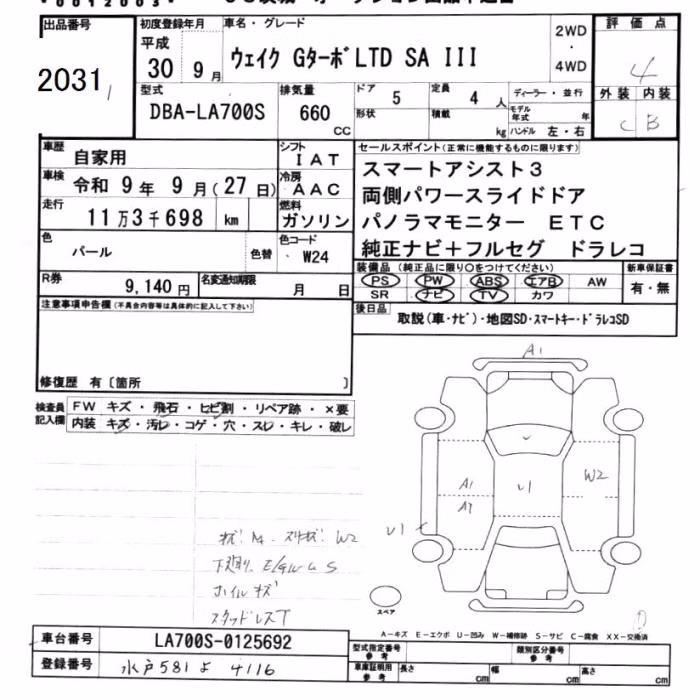 出品番号 初度登録年月 車名・グレード 評価点
2031 平成 30 9月 ウェイク GターボLTD SA III 2WD・4WD 4
型式 排気量 ドア 定員 ディーラー・並行 外装 内装
DBA-LA700S 660 CC 5 4人 モデル年式 年 C B
形状 積載 kg ハンドル 左・右
車歴 自家用 シフト IAT セールスポイント(正常に機能するものに限ります)
車検 令和 9年 9月(27日) 冷房 AAC スマートアシスト3
走行 11万3千698 km 燃料 ガソリン 両側パワースライドドア
パノラマモニター ETC
色 パール 色替 色コード W24 純正ナビ+フルセグ ドラレコ
装備品(純正品に限り○をつけてください) 新車保証書
R券 9,140円 名変通知期限 月 日 PS PW ABS エアB AW 有・無
SR ナビ TV カワ
注意事項申告欄(不具合内容等は具体的に記入して下さい)
後日品 取説(車・ナビ)・地図SD・スマートキー・ドラレコSD
修復歴 有〔箇所 〕
検査員記入欄 FW キズ・飛石・ヒビ割・リペア跡・×要
内装 キズ・汚レ・コゲ・穴・スレ・キレ・破レ
A1
W2
A1
U1
U1
W2
S
ホイルキズ
スタッドレスT
スペア
A-キズ E-エクボ U-凹み W-補修跡 S-サビ C-腐食 XX-交換済
車台番号 LA700S-0125692 型式指定番号 参考 類別区分番号 参考
登録番号 水戸581よ4116 車庫証明用 参考 長さ cm 幅 cm 高さ cm